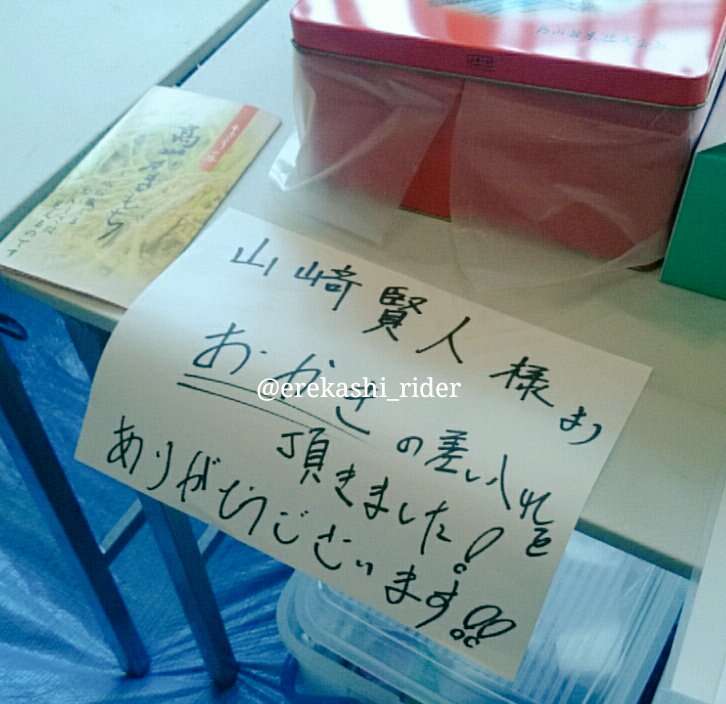 山﨑賢人様より
おかきの差し入れを
頂きました!
ありがとうございます!!
@erekashi_rider